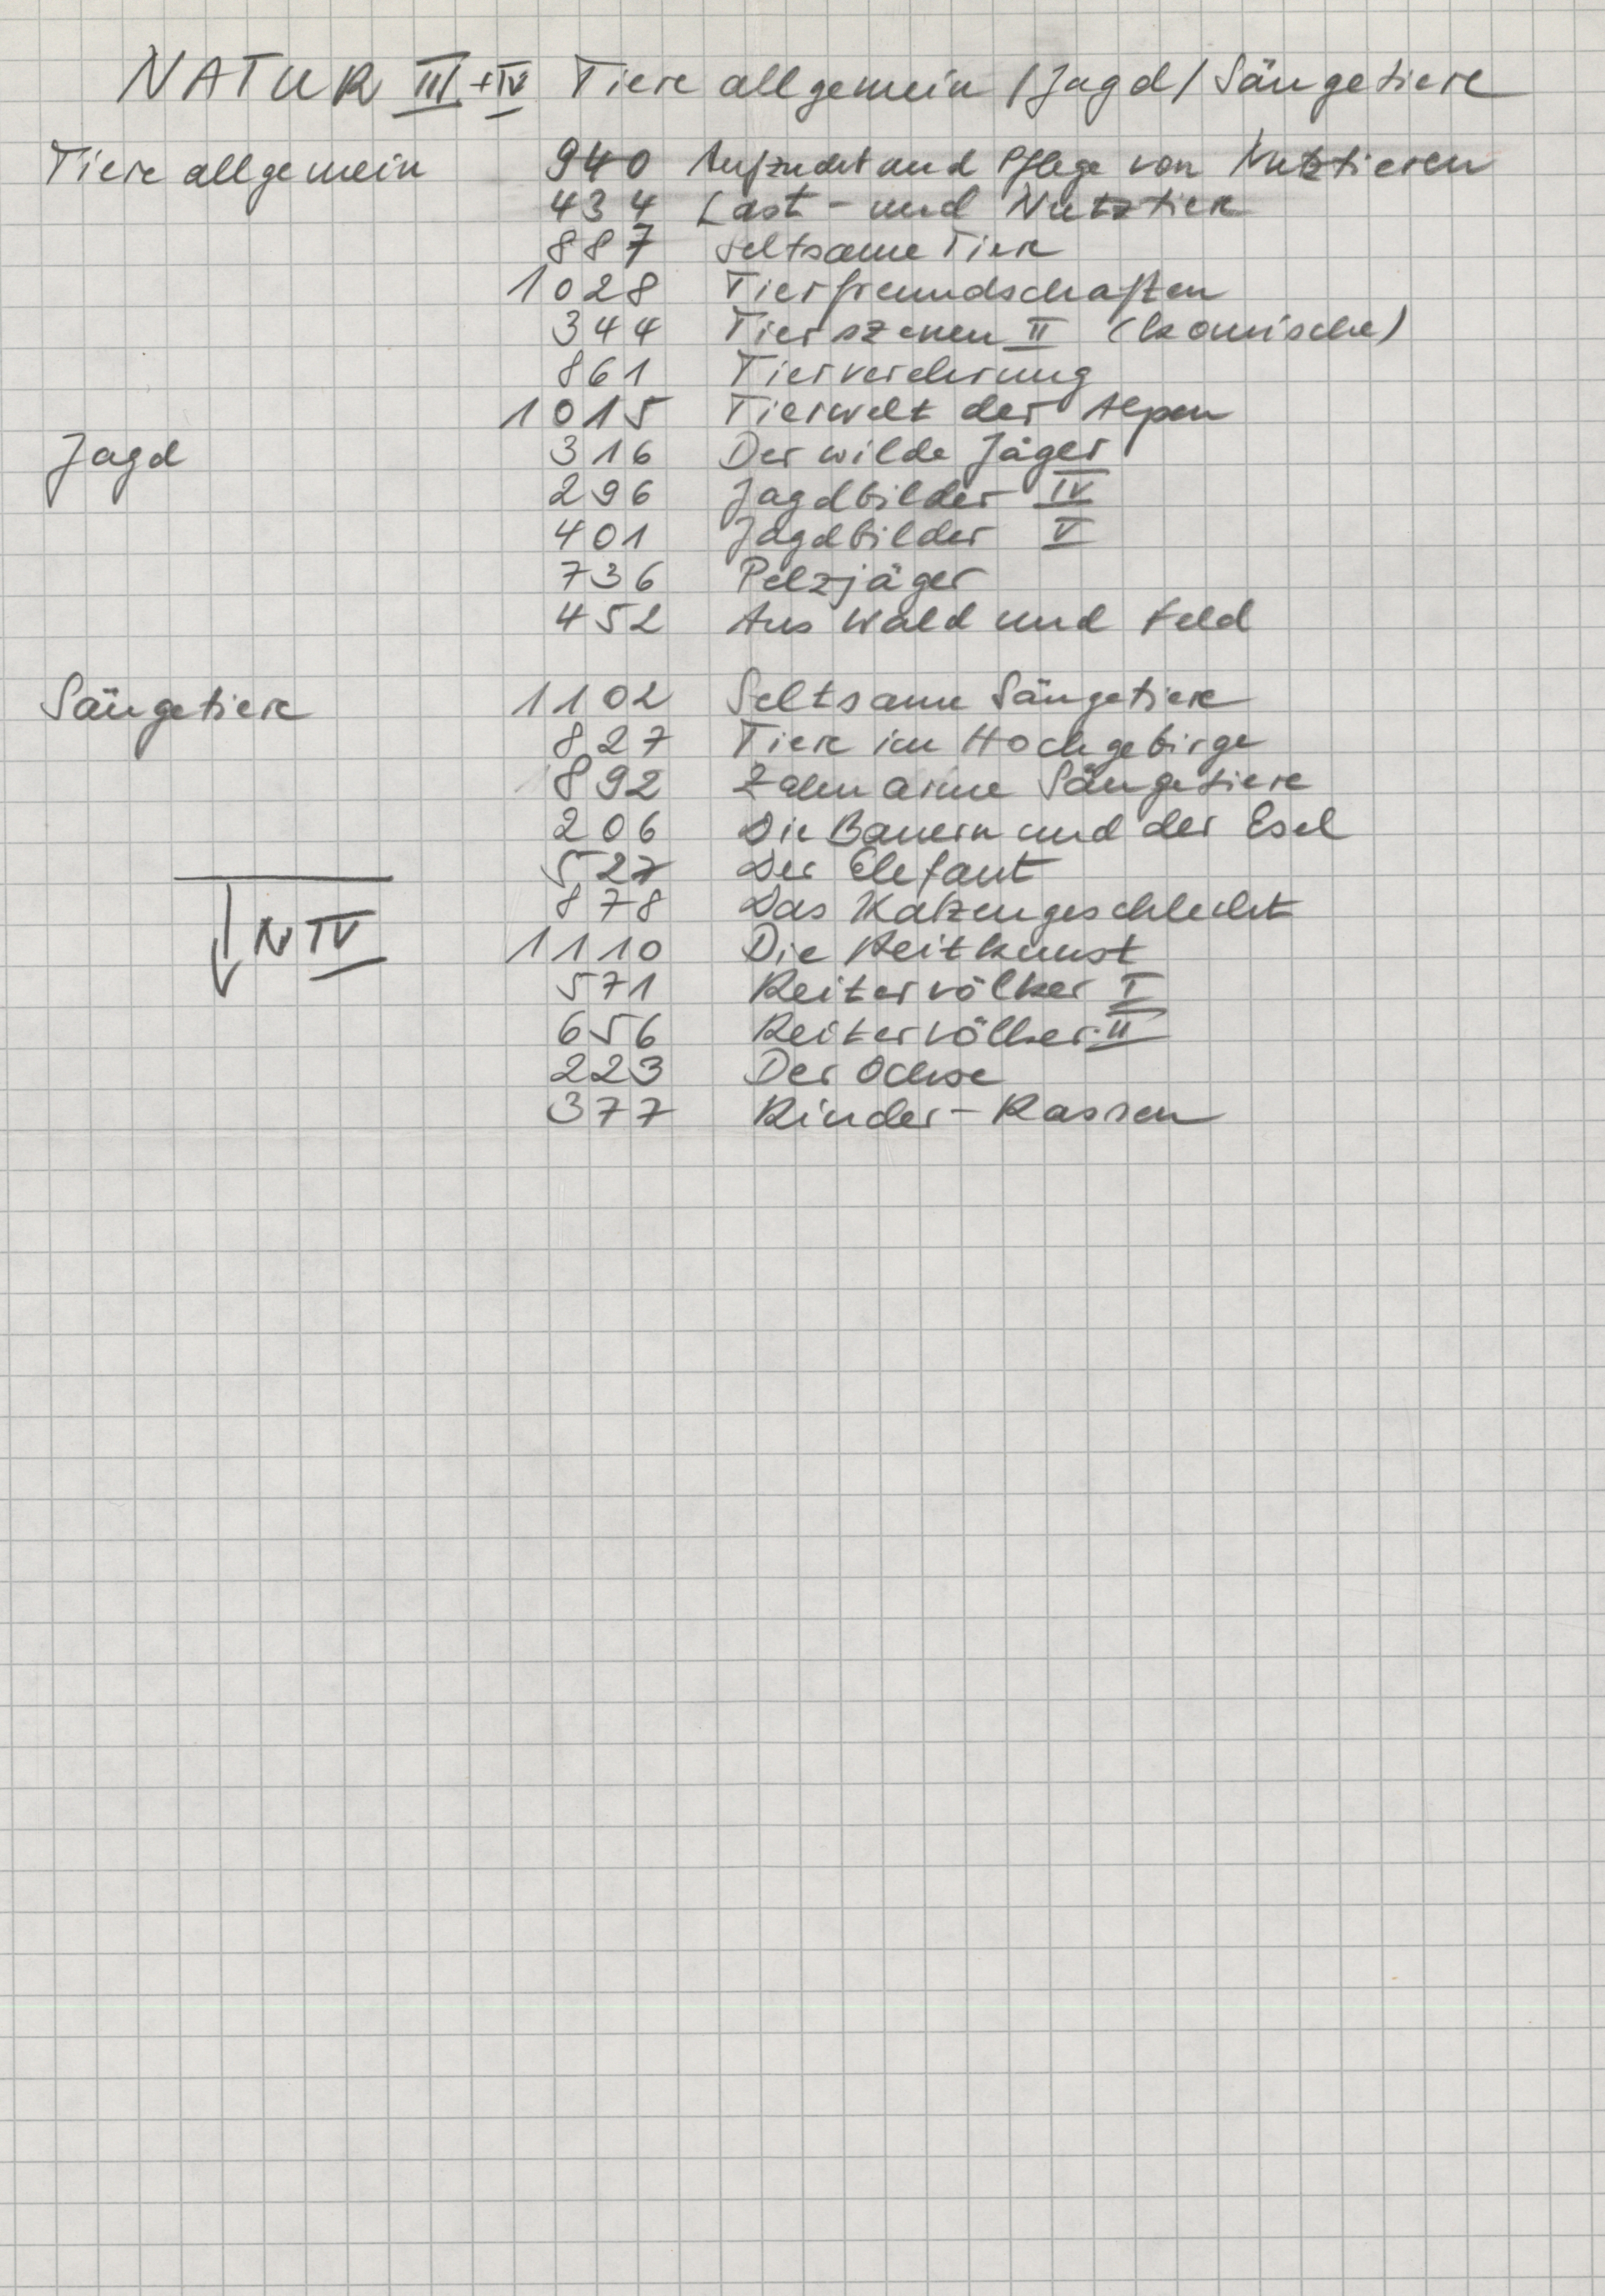 NATUR III + IV Tiere allgemein / Jagd / Säugetiere
Tiere allgemein 940 Aufzucht und Pflege von Nutztieren
434 Last- und Nutztiere
887 Seltsame Tiere
1028 Tierfreundschaften
344 Tierszenen II (komische)
861 Tierverehrung
1015 Tierwelt der Alpen
Jagd 316 Der wilde Jäger
296 Jagdbilder IV
401 Jagdbilder V
736 Pelzjäger
452 Aus Wald und Feld
Säugetiere 1102 Seltsame Säugetiere
827 Tiere im Hochgebirge
892 Zahnarme Säugetiere
206 Die Bauern und der Esel
527 Der Elefant
878 Das Katzengeschlecht
↓ N IV 1110 Die Reitkunst
571 Reitervölker I
656 Reitervölker II
223 Der Ochse
377 Rinder-Rassen